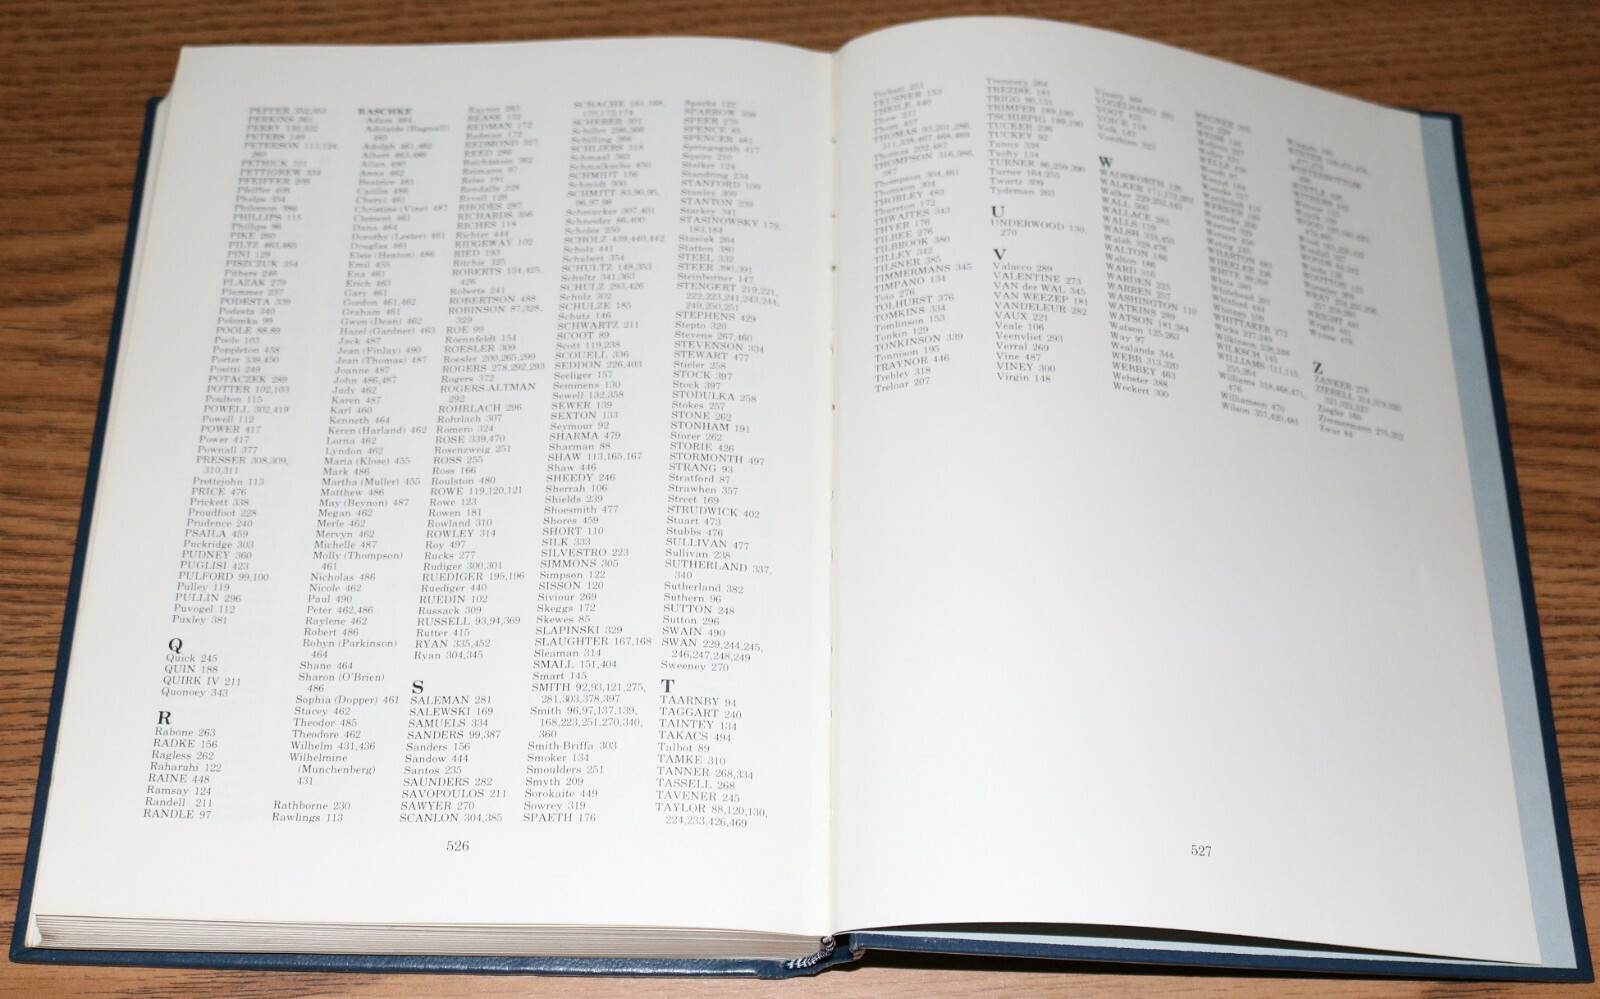 PEPPER 352,353
PERKINS 361
PERRY 130,332
PETERS 149
PETERSON 113,124,
260
PETHICK 221
PETTIGREW 334
PFEIFFER 209
Pfeiffer 409
Phelps 354
Philemon 386
PHILLIPS 115
Phillips 96
PIKE 260
PILTZ 463,465
PINI 129
PISZCZUK 354
Pithers 246
PLAZAK 279
Plummer 237
PODESTA 339
Podesta 340
Polomka 99
POOLE 88,89
Poole 103
Poppleton 458
Porter 339,450
Positti 249
POTACZEK 289
POTTER 102,103
Poulton 115
POWELL 302,419
Powell 112
POWER 417
Power 417
Pownall 377
PRESSER 308,309,
310,311
Prettejohn 113
PRICE 476
Prickett 338
Proudfoot 228
Prudence 240
PSAILA 459
Puckridge 303
PUDNEY 360
PUGLISI 423
PULFORD 99,100
Pulley 119
PULLIN 296
Puvogel 112
Puxley 381
Q
Quick 245
QUIN 188
QUIRK IV 211
Quonoey 343
R
Rabone 263
RADKE 156
Ragless 262
Raharuhi 122
RAINE 448
Ramsay 124
Randell 211
RANDLE 97
RASCHKE
Adam 464
Adelaide (Bagnall)
Adolph 461,462
Albert 463,486
Allan 490
Anna 462
Beatrice 461
Caitlin 486
Cheryl 461
Christine (Vine) 487
Clement 461
Dana 464
Dorothy (Lester) 461
Douglas 461
Elsie (Heaton) 486
Emil 455
Ena 461
Erich 463
Gary 461
Gordon 461,462
Graham 461
Gwen (Dean) 462
Hazel (Gardner) 463
Jack 487
Jean (Finlay) 490
Jean (Thomas) 487
Joanne 487
John 486,487
Judy 462
Karen 487
Karl 460
Kenneth 464
Keren (Harland) 462
Lorna 462
Lyndon 462
Maria (Klose) 455
Mark 486
Martha (Muller) 455
Matthew 486
May (Beynon) 487
Megan 462
Merle 462
Mervyn 462
Michelle 487
Molly (Thompson)
461
Nicholas 486
Nicole 462
Paul 490
Peter 462,486
Raylene 462
Robert 486
Robyn (Parkinson)
464
Shane 464
Sharon (O'Brien)
486
Sophia (Dopper) 461
Stacey 462
Theodor 485
Theodore 462
Wilhelm 431,436
Wilhelmine
(Munchenberg)
431
Rathborne 230
Rawlings 113
Rayson 263
REASE 132
REDMAN 172
Redman 172
REDMOND 227
REED 286
Reichstein 362
Reimann 97
Reiss 191
Rendalls 228
Revell 129
RHODES 287
RICHARDS 356
RICHES 118
Richter 444
RIDGEWAY 102
RIED 193
Ritchie 325
ROBERTS 134,425,
426
Roberts 241
ROBERTSON 488
ROBINSON 87,328,
329
ROE 99
Roennfeldt 154
ROESLER 309
Roesler 200,265,299
ROGERS 278,292,293
Rogers 372
ROGERS-ALTMAN
292
ROHRLACH 296
Rohrlach 307
Romero 324
ROSE 339,470
Rosenzweig 251
ROSS 255
Ross 166
Roulston 480
ROWE 119,120,121
Rowe 123
Rowen 181
Rowland 310
ROWLEY 314
Roy 497
Rucks 277
Rudiger 300,301
RUEDIGER 195,196
Ruediger 440
RUEDIN 102
Russack 309
RUSSELL 93,94,369
Rutter 415
RYAN 335,452
Ryan 304,345
S
SALEMAN 281
SALEWSKI 169
SAMUELS 334
SANDERS 99,387
Sanders 156
Sandow 444
Santos 235
SAUNDERS 282
SAVOPOULOS 211
SAWYER 270
SCANLON 304,385
SCHACHE 161,169,
170,173,174
SCHERER 301
Schiller 298,366
Schilling 366
SCHLIEBS 318
Schmaal 363
Schmalkuche 450
SCHMIDT 156
Schmidt 300
SCHMITT 83,90,95,
96,97,98
Schmucker 307,401
Schneider 86,400
Scholes 250
SCHOLZ 439,440,442
Scholz 441
Schubert 354
SCHULTZ 148,353
Schultz 341,363
SCHULZ 293,426
Schulz 302
SCHULZE 185
Schutz 146
SCHWARTZ 211
SCOOT 89
Scott 119,238
SCOUELL 336
SEDDON 226,403
Seeliger 157
Semmens 130
Sewell 132,358
SEWER 139
SEXTON 133
Seymour 92
SHARMA 479
Sharman 88
SHAW 113,165,167
Shaw 446
SHEEDY 246
Sherrah 106
Shields 239
Shoesmith 477
Shores 459
SHORT 110
SILK 333
SILVESTRO 223
SIMMONS 305
Simpson 122
SISSON 120
Siviour 269
Skeggs 172
Skewes 85
SLAPINSKI 329
SLAUGHTER 167,168
Sleaman 314
SMALL 151,404
Smart 145
SMITH 92,93,121,275,
281,303,378,397
Smith 96,97,137,139,
168,223,251,270,340,
360
Smith-Briffa 303
Smoker 134
Smoulders 251
Smyth 209
Sorokaite 449
Sowrey 319
SPAETH 176
Sparks 122
SPARROW 359
SPEER 270
SPENCE 85
SPENCER 481
Springsguth 417
Squire 210
Stalker 124
Standring 234
STANFORD 108
Stanley 300
STANTON 259
Starkey 341
STASINOWSKY 179,
183,184
Stasiuk 264
Statton 380
STEEL 332
STEER 390,391
Steinborner 147
STENGERT 219,221,
222,223,241,243,244,
249,250,251
STEPHENS 429
Stepto 320
Stevens 267,460
STEVENSON 334
STEWART 477
Stieler 258
STOCK 397
Stock 397
STODULKA 258
Stokes 257
STONE 262
STONHAM 191
Storer 262
STORIE 426
STORMONTH 497
STRANG 93
Stratford 87
Strawhen 357
Street 169
STRUDWICK 402
Stuart 473
Stubbs 476
SULLIVAN 477
Sullivan 238
SUTHERLAND 337,
340
Sutherland 382
Suthern 96
SUTTON 248
Sutton 296
SWAIN 490
SWAN 229,244,245,
246,247,248,249
Sweeney 270
T
TAARNBY 94
TAGGART 240
TAINTEY 134
TAKACS 494
Talbot 89
TAMKE 310
TANNER 268,334
TASSELL 268
TAVENER 245
TAYLOR 88,120,130,
224,233,426,469
526
Terbutt 251
TEUSNER 153
THEILE 440
Thew 237
Thom 457
THOMAS 93,201,286,
311,339,467,468,469
Thomas 202,487
THOMPSON 316,386,
387
Thompson 304,461
Thomson 304
THORLEY 483
Thurston 172
THWAITES 343
THYER 176
TILBEE 276
TILBROOK 380
TILLEY 342
TILSNER 385
TIMMERMANS 345
TIMPANO 134
Toio 276
TOLHURST 376
TOMKINS 334
Tomlinson 153
Tonkin 129
TONKINSON 339
Tonnison 195
TRAYNOR 446
Trebley 318
Treloar 207
Trennery 264
TREZISE 181
TRIGG 90,151
TRIMPER 189,190
TSCHIRPIG 189,190
TUCKER 236
TUCKEY 92
Tunny 338
Tuohy 134
TURNER 86,259,390
Turner 164,255
Twartz 309
Tydeman 263
U
UNDERWOOD 130,
270
V
Valacco 289
VALENTINE 273
VAN der WAL 345
VAN WEEZEP 181
VANDELEUR 282
VAUX 221
Veale 106
Veenvliet 293
Verral 269
Vine 487
VINEY 300
Virgin 148
VOGELSANG 395
VOGT 425
VOICE 119
Volk 145
W
WADSWORTH 126
WALKER 171,173,263
Walker 229,252,445
WALL 500
WALLACE 281
WALLS 119
WALSH 333,453
Walsh 328,476
WALTON 186
Walton 186
WARD 316
WARDEN 225
WARREN 257
WASHINGTON 110
WATKINS 289
WATSON 181,384
Watson 125,263
Way 97
Wealands 344
WEBB 313,320
WEBBEY 463
Webster 388
Weckert 300
WHEELER 226
WHITE 89,309
White 380
Whitehead 251
Whitford 444
Whitney 109
WHITTAKER 272
Wicks 237,249
Wilkinson 238,288
WILKSCH 145
WILLIAMS 111,115,
255,364
Williams 318,468,471,
476
Williamson 470
Wilson 357,420,481
WRIGHT 481
Wright 479
Wynne 478
Z
ZANKER 278
ZIEBELL 314,319,320,
321,322,323
Ziegler 160
Zimmermann 275,352
Zwar 84
527